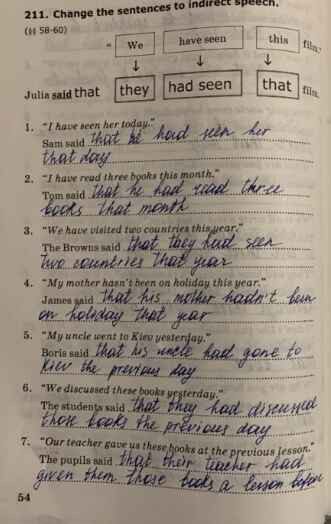 211. Change the sentences to indirect speech.
(§§ 58-60)
" We have seen this film."
↓ ↓ ↓
Julia said that they had seen that film.
1. "I have seen her today."
Sam said that he had seen her
that day
2. "I have read three books this month."
Tom said that he had read three
books that month
3. "We have visited two countries this year."
The Browns said that they had seen
two countries that year
4. "My mother hasn't been on holiday this year."
James said that his mother hadn't been
on holiday that year
5. "My uncle went to Kiev yesterday."
Boris said that his uncle had gone to
Kiev the previous day
6. "We discussed these books yesterday."
The students said that they had discussed
those books the previous day
7. "Our teacher gave us these books at the previous lesson."
The pupils said that their teacher had
given them those books a lesson before
54